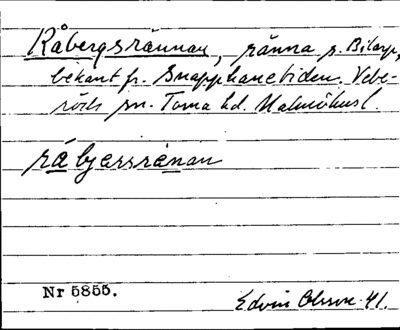 Råbergsrännan, ränna p. Bilarp,
bekant fr. Snapphanetiden. Vebe-
röds sn. Torna hd. Malmöhus l.
råbjærsrænan
Nr 5855.
Edvin Olsson 41.